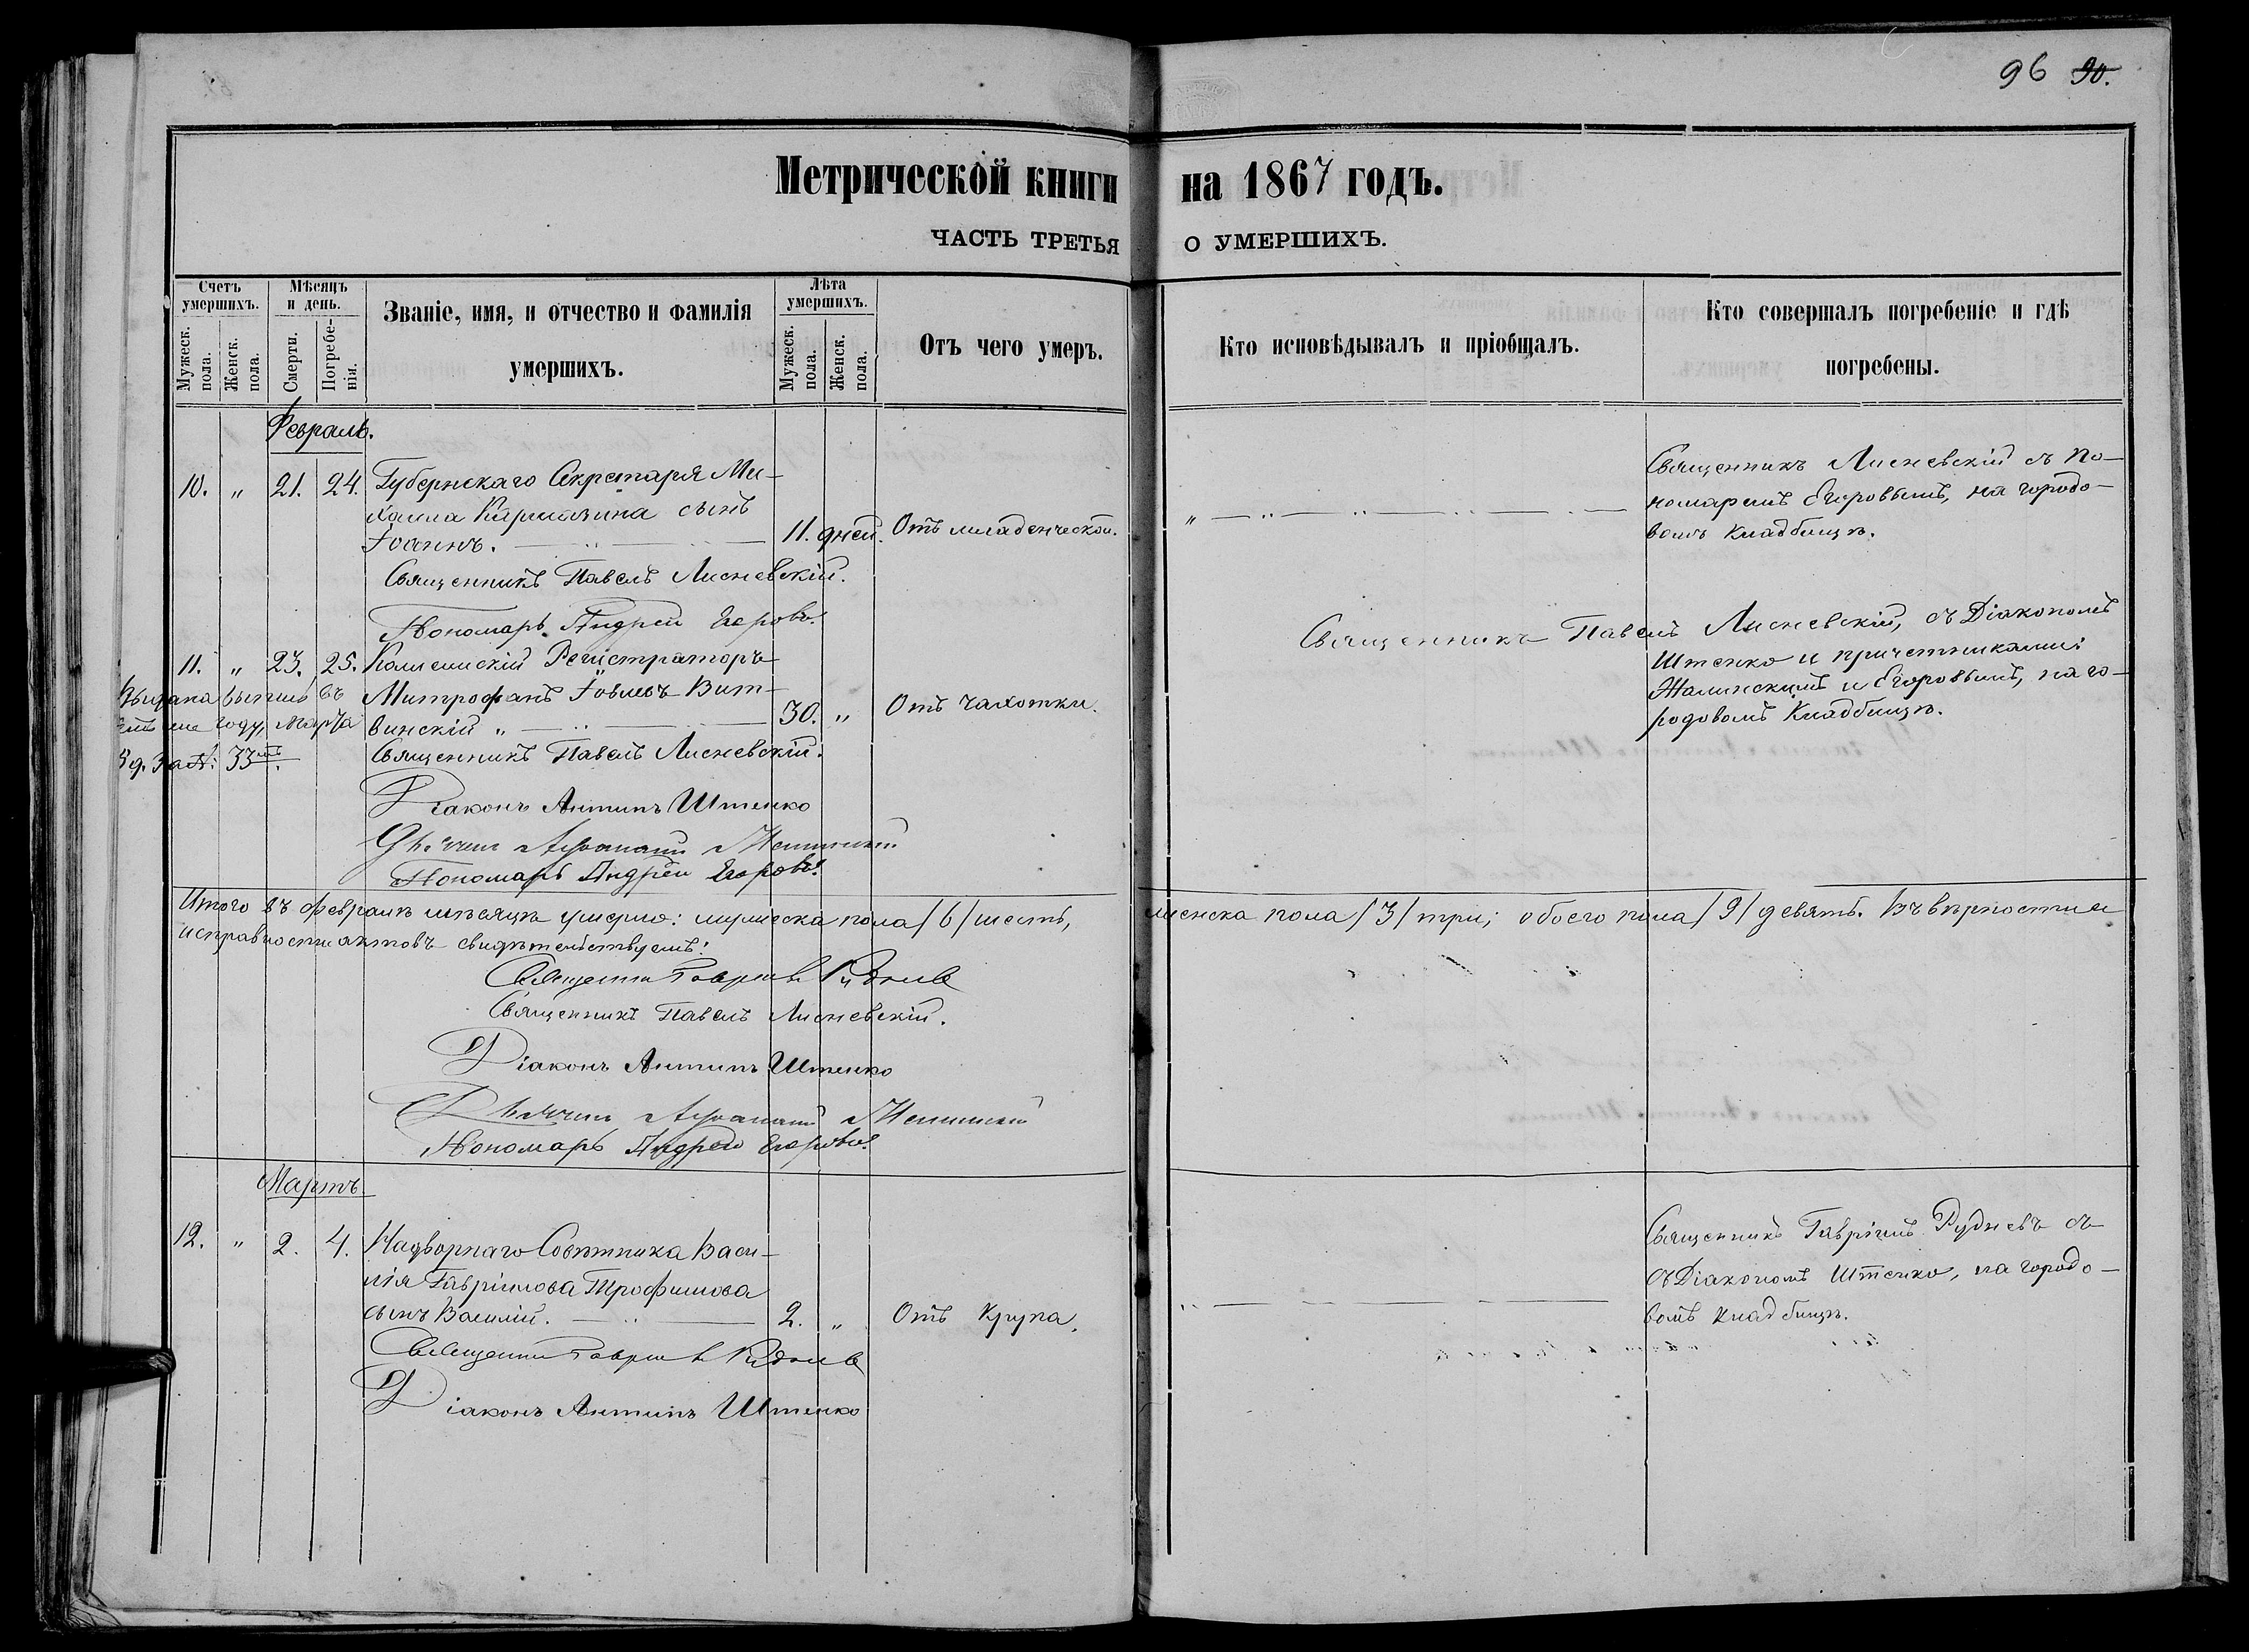 96 90.
Метрической книги на 1867 годъ.
ЧАСТЬ ТРЕТЬЯ О УМЕРШИХЪ.
Счетъ умершихъ.
Мужеск. пола.
Женск. пола.
Мѣсяцъ и день.
Смерти.
Погребенія.
Званіе, имя, и отчество и фамилія
умершихъ.
Лѣта умершихъ.
Мужеск. пола.
Женск. пола.
Отъ чего умеръ.
Кто исповѣдывалъ и пріобщалъ.
Кто совершалъ погребеніе и гдѣ
погребены.
Февраль.
10. " 21. 24. Губернскаго Секретаря Ми-
хаила Кармазина сынъ
Іоаннъ. 11. дней. Отъ младенческой.
Священникъ Лисневскій съ По-
номаремъ Егоровымъ, на городо-
вомъ кладбищѣ.
Священникъ Павелъ Лисневскій.
Пономарь Андрей Егоровъ.
11. " 23. 25. Коллежскій Регистраторъ
Митрофанъ Іовлевъ Вит-
винскій " 30. " Отъ чахотки.
Выдана выпись въ
семъ же году, Марта
5 д. за №: 33мъ.
Священникъ Павелъ Лисневскій, съ Діакономъ
Штепко и причетниками:
Жалинскимъ и Егоровымъ, на го-
родовомъ Кладбищѣ.
Священникъ Павелъ Лисневскій.
Діаконъ Антипъ Штепко
Пономарь Андрей Егоровъ.
Итого въ февралѣ мѣсяцѣ умерло: мужеска пола /6/ шесть, женска пола /3/ три; обоего пола /9/ девять. Въ вѣрности и
исправности актовъ свидѣтельствуемъ:
Священникъ Гавріилъ Рудневъ
Священникъ Павелъ Лисневскій.
Діаконъ Антипъ Штепко
Пономарь Андрей Егоровъ.
Мартъ
12. " 2. 4. Надворнаго Совѣтника Васи-
лія Гавріилова Трофимова
сынъ Василій. 2. " Отъ Крупа.
Священникъ Гавріилъ Рудневъ съ
съ Діакономъ Штепко, на городо-
вомъ кладбищѣ.
Священникъ Гавріилъ Рудневъ
Діаконъ Антипъ Штепко